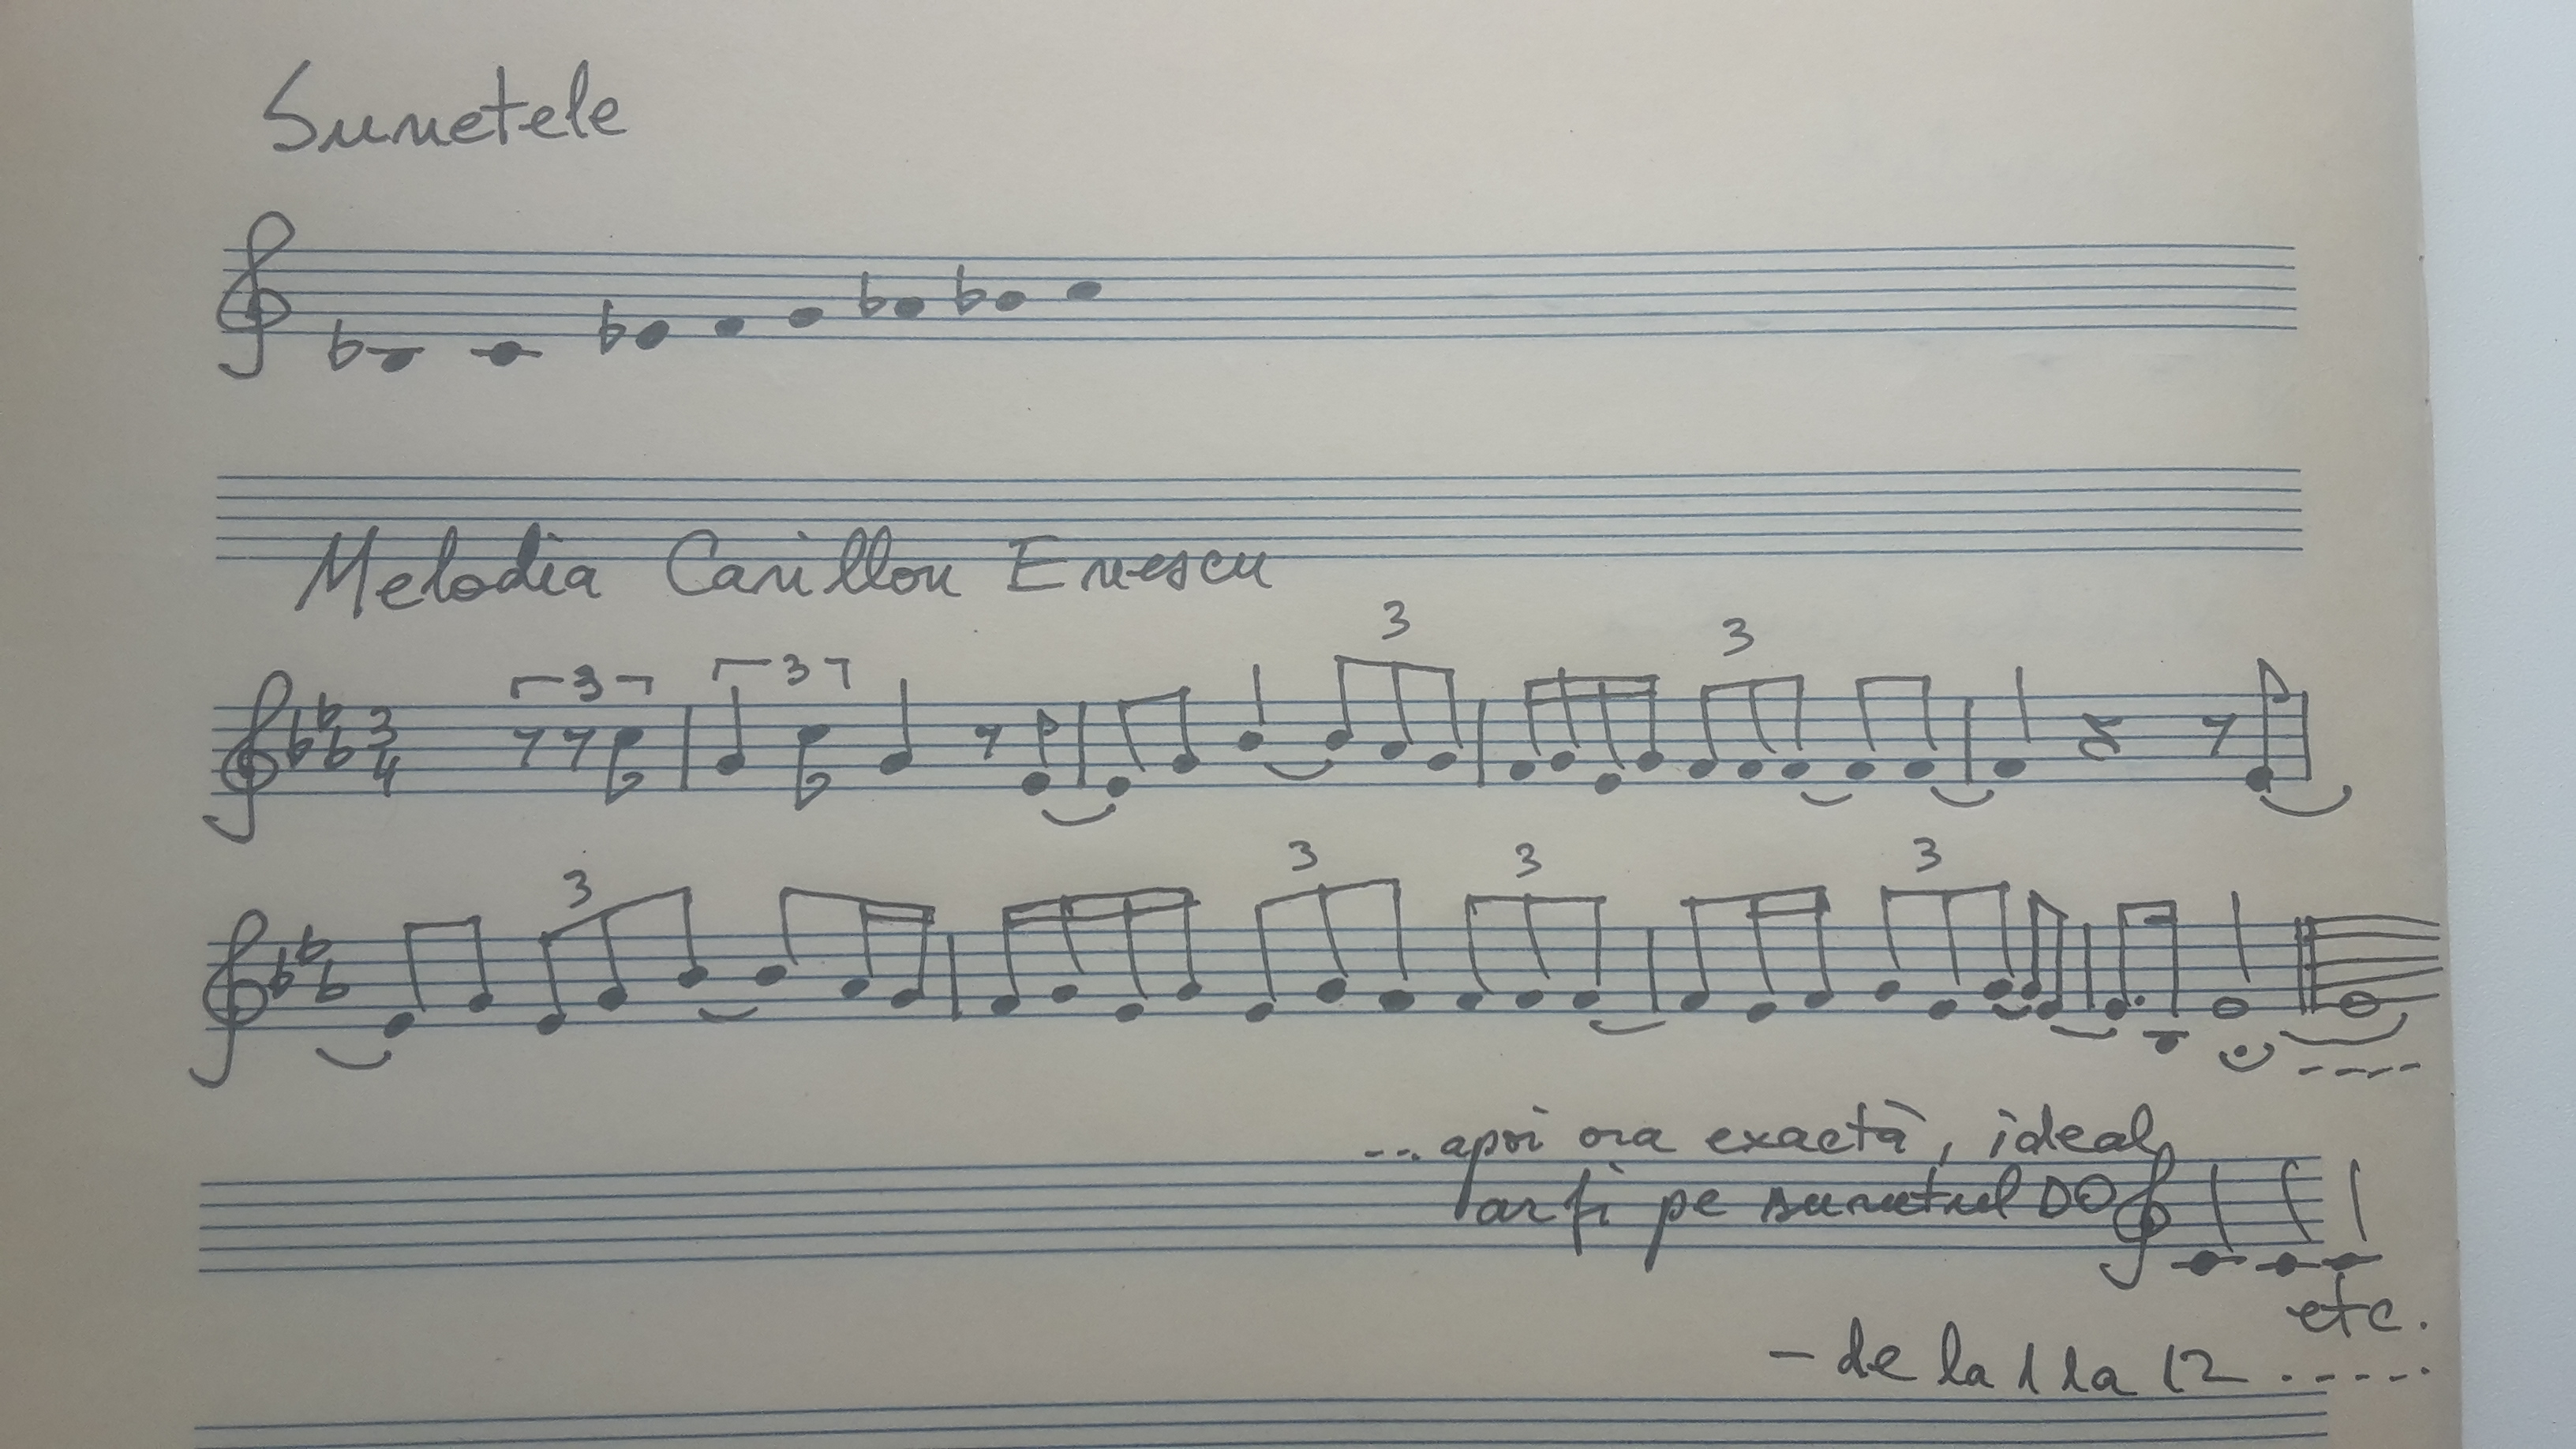 Sunetele
Melodia Carillon Enescu
3 3 3 3
3
4
3 3 3 3
... apoi ora exactă, ideal
ar fi pe sunetul DO
etc.
- de la 1 la 12 . - - - - .